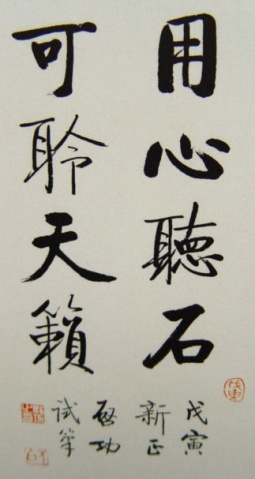 用心聽石
可聆天籟
戊寅
新正
啓功
試筆